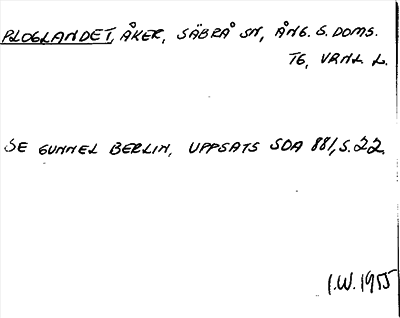 PLOGLANDET, ÅKER, SÄBRÅ SN, ÅNG. S. DOMS.
TG, VRNL L.
SE GUNNEL BERLIN, UPPSATS SOA 881, S. 22.
I.W. 1955